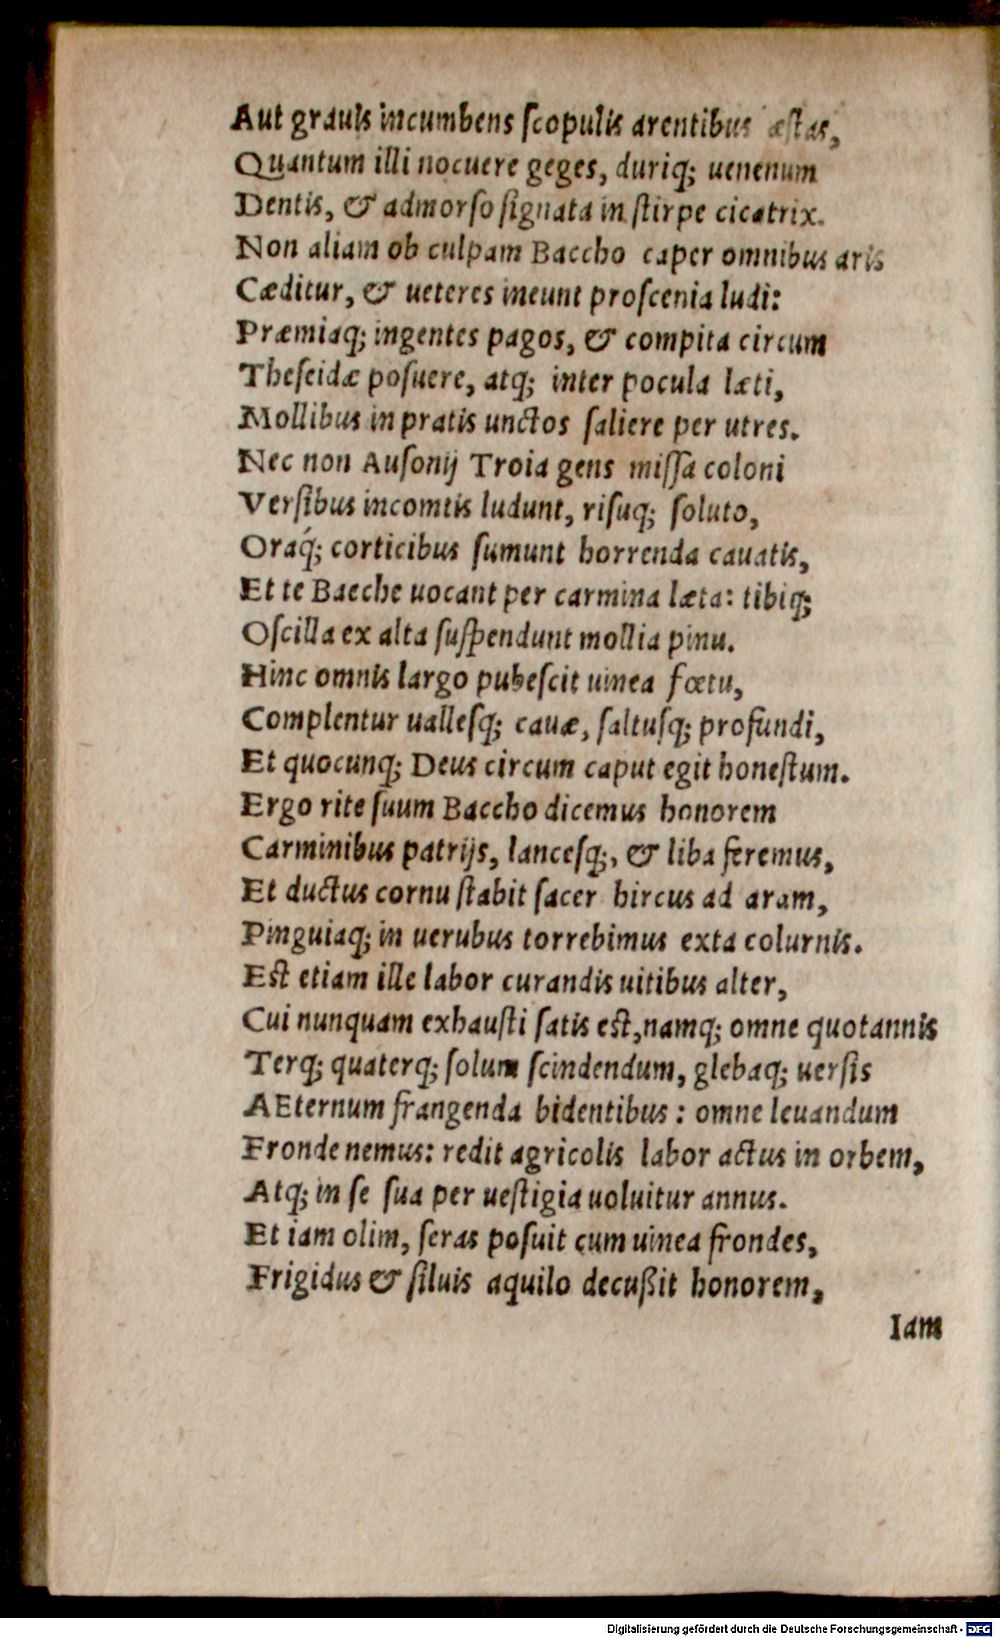 Aut grauis incumbens ſcopulis arentibus æſtas,
Quantum illi nocuere geges, duriq; uenenum
Dentis, & admorſo ſignata in ſtirpe cicatrix.
Non aliam ob culpam Baccho caper omnibus aris
Cæditur, & ueteres ineunt proſcenia ludi:
Præmiaq; ingentes pagos, & compita circum
Theſeidæ poſuere, atq; inter pocula læti,
Mollibus in pratis unctos ſaliere per utres.
Nec non Auſonij Troia gens miſſa coloni
Verſibus incomtis ludunt, riſuq; ſoluto,
Oraq́; corticibus ſumunt horrenda cauatis,
Et te Bacche uocant per carmina læta: tibiq;
Oſcilla ex alta ſuſpendunt mollia pinu.
Hinc omnis largo pubeſcit uinea fœtu,
Complentur ualleſq; cauæ, ſaltuſq; profundi,
Et quocunq; Deus circum caput egit honeſtum.
Ergo rite ſuum Baccho dicemus honorem
Carminibus patrijs, lanceſq;, & liba feremus,
Et ductus cornu ſtabit ſacer hircus ad aram,
Pinguiaq; in uerubus torrebimus exta colurnis.
Eſt etiam ille labor curandis uitibus alter,
Cui nunquam exhauſti ſatis eſt, namq; omne quotannis
Terq; quaterq; ſolum ſcindendum, glebaq; uerſis
AEternum frangenda bidentibus: omne leuandum
Fronde nemus: redit agricolis labor actus in orbem,
Atq; in ſe ſua per ueſtigia uoluitur annus.
Et iam olim, ſeras poſuit cum uinea frondes,
Frigidus & ſiluis aquilo decußit honorem,
Iam
Digitalisierung gefördert durch die Deutsche Forschungsgemeinschaft - DFG